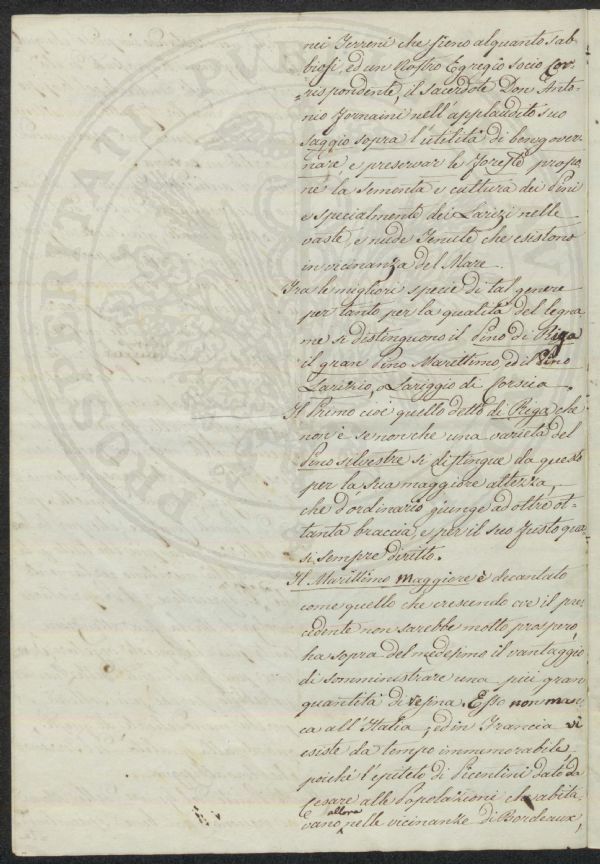 nei Terreni che sieno alquanto sab-
biosi, ed un Nostro Egregio socio Cor-
=rispondente, il sacerdote Don Anto-
nio Fornaini nell'applaudito suo
saggio sopra l'utilità di ben gover-
nare e preservar le foreste propo-
ne la sementa e cultura dei Pini
e specialmente dei Larizi nelle
vaste, e nude Tenute che esistono
in vicinanza del Mare.
Tra le migliori specie di tal genere
per tanto per la qualità del legna
me si distinguono il Pino di Riga
il gran Pino Marittimo, ed il Pino
Larizio, o Lariggio di Corsica.
Il Primo cioè quello detto di Riga che
non è se non che una varietà del
Pino silvestre si distingue da questo
per la sua maggiore altezza,
che d'ordinario giunge ad oltre ot-
tanta braccia, e per il suo fusto qua-
si sempre diritto.
Il Marittimo maggiore è decantato
come quello che crescendo ove il pre-
cedente non sarebbe molto prospero,
ha sopra del medesimo il vantaggio
di somministrare una più gran
quantità di resina. Esso non man-
ca all'Italia, ed in Francia vi
esiste da tempo immemorabile
poichè l'epiteto di Picentini dato da
Cesare alle Popolazioni che abita-
allora
vano nelle vicinanze di Bordeaux,
PROSPERITATI PUBL